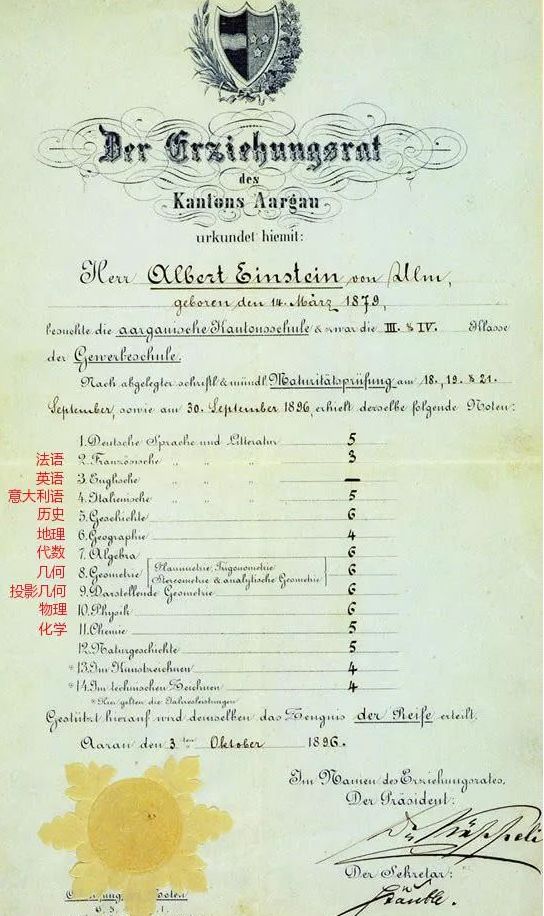 Der Erziehungsrat
des
Kantons Aargau
urkundet hiemit:
Herr Albert Einstein von Ulm,
geboren den 14. März 1879,
besuchte die aargauische Kantonsschule & zwar die III. & IV. Klasse
der Gewerbeschule.
Nach abgelegter schriftl & mündl. Maturitätsprüfung am 18., 19. & 21.
September, sowie am 30. September 1896, erhielt derselbe folgende Noten:
1. Deutsche Sprache und Litteratur 5
法语 2. Französische " " " 3
英语 3. Englische " " " —
意大利语 4. Italienische " " " 5
历史 5. Geschichte 6
地理 6. Geographie 4
代数 7. Algebra 6
几何 8. Geometrie [Planimetrie, Trigonometrie
Stereometrie & analytische Geometrie] 6
投影几何 9. Darstellende Geometrie 6
物理 10. Physik 6
化学 11. Chemie 5
12. Naturgeschichte 5
*13. Im Kunstzeichnen 4
*14. Im technischen Zeichnen 4
*Hier gelten die Jahresleistungen
Gestützt hierauf wird demselben das Zeugnis der Reife erteilt.
Aarau den 3ten Oktober 1896.
Im Namen des Erziehungsrates,
Der Präsident:
Der Sekretär: